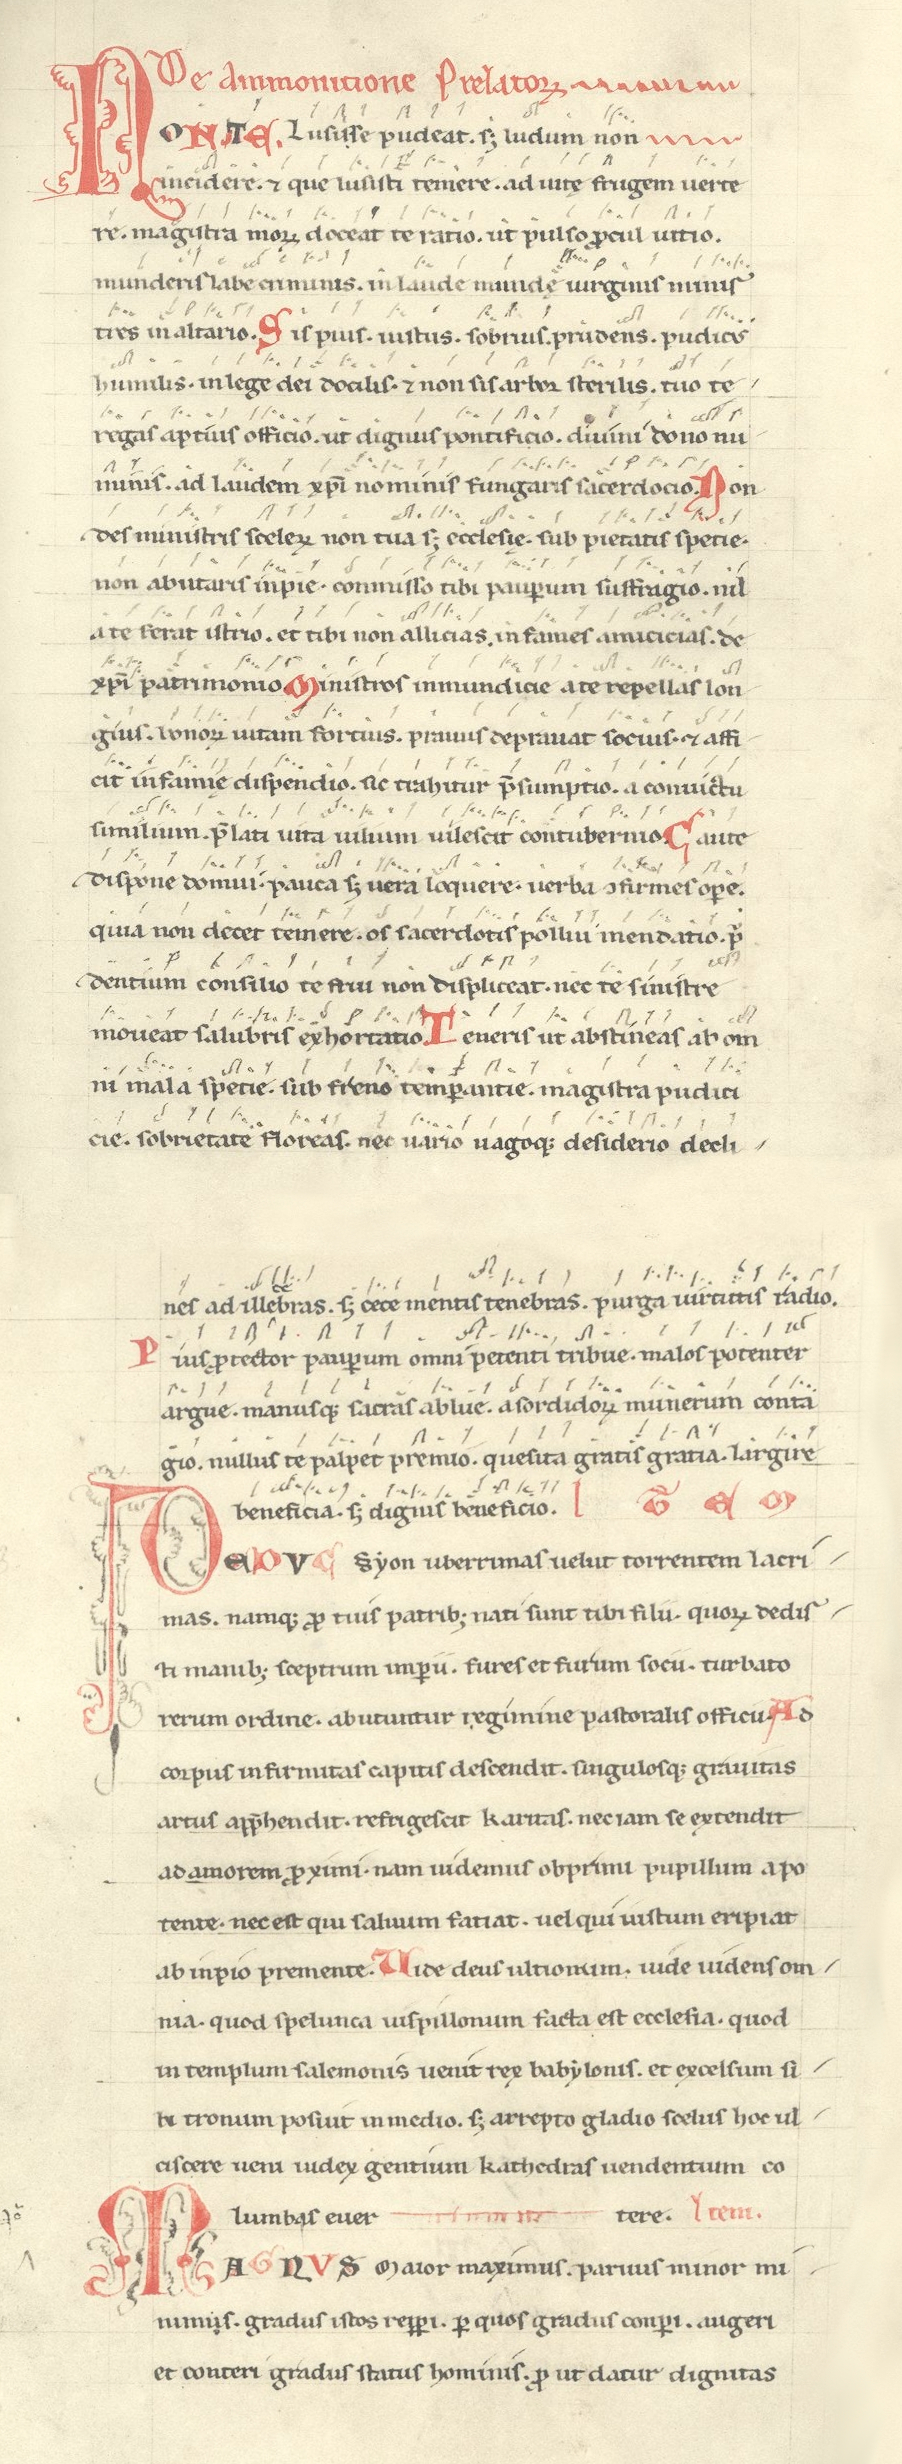 De ammonitione Prelatoꝝ
NON TE. Lusisse pudeat. sꝫ ludum non
incidere. ⁊ que lusisti temere. ad uitę frugem uerte
re. magistra moꝝ doceat te ratio. ut pulso ꝓcul uitio.
munderis labe criminis. in laude mundę uirginis minis
tres in altario. Sis pius. iustus. sobrius. prudens. pudicꝰ
humilis. in lege dei docilis. ⁊ non sis arbor sterilis. tuo te
regas aptius officio. ut dignus pontificio. diuini dono nu
minis. ad laudem xp̄i nominis fungaris sacerdocio. Non
des ministris sceleꝝ non tua sꝫ ecclesię. sub pietatis specie.
non abutaris inpie. commisso tibi pauꝑum suffragio. nil
a te ferat istrio. et tibi non allicias. infames amicicias. de
xp̄i patrimonio. Ministros inmundicie a te repellas lon
gius. bonoꝝ uitam fortius. prauus deprauat socius. ⁊ affi
cit infamię dispendio. sic trahitur p̄sumptio. a conuictu
similium. p̄lati uita uilium uilescit contubernio. Caute
dispone domui. pauca sꝫ uera loquere. uerba ↄfirmes oꝑe.
quia non decet temere. os sacerdotis pollui mendatio. pru
dentium consilio te frui non displiceat. nec te sinistre
moueat salubris exhortatio. Teneris ut abstineas ab om
ni mala specie. sub freno temꝑantie. magistra pudici
cie. sobrietate floreas. nec uario uagoqꝫ desiderio decli
nes ad illebras. sꝫ cece mentis tenebras. purga uirtutis radio.
Pius ꝓtector pauꝑum omni petenti tribue. malos potenter
argue. manusqꝫ sacras ablue. a sordidoꝝ munerum conta
gio. nullus te palpet premio. quesita gratis gratia. largire
beneficia. sꝫ dignis beneficio. ITEM
DEDUC Syon uberrimas uelut torrentem lacri
mas. namqꝫ ꝓ tuis patribꝫ nati sunt tibi filii. quoꝝ dedis
ti manibꝫ sceptrum imꝑii. fures et furum socii. turbato
rerum ordine. abutuntur regimine pastoralis officii. Ad
corpus infirmitas capitis descendit. singulosqꝫ grauitas
artus app̄hendit. refrigescit karitas. nec iam se extendit
ad amorem ꝓximi. nam uidemus obprimi pupillum a po
tente. nec est qui saluum fatiat. uel qui iustum eripiat
ab inpio premente. Uide deus ultionum. uide uidens om
nia. quod spelunca uispillonum facta est ecclesia. quod
in templum salemonis uenit rex babylonis. et excelsum si
bi tronum posuit in medio. sꝫ arrepto gladio scelus hoc ul
ciscere ueni iudex gentium kathedras uendentium co
lumbas euer tere. Item.
MAGNUS Maior maximus. paruus minor mi
nimus. gradus istos repꝑi. ꝑ quos gradus conꝑi. augeri
et conteri gradus status hominis. ꝓ ut datur dignitas